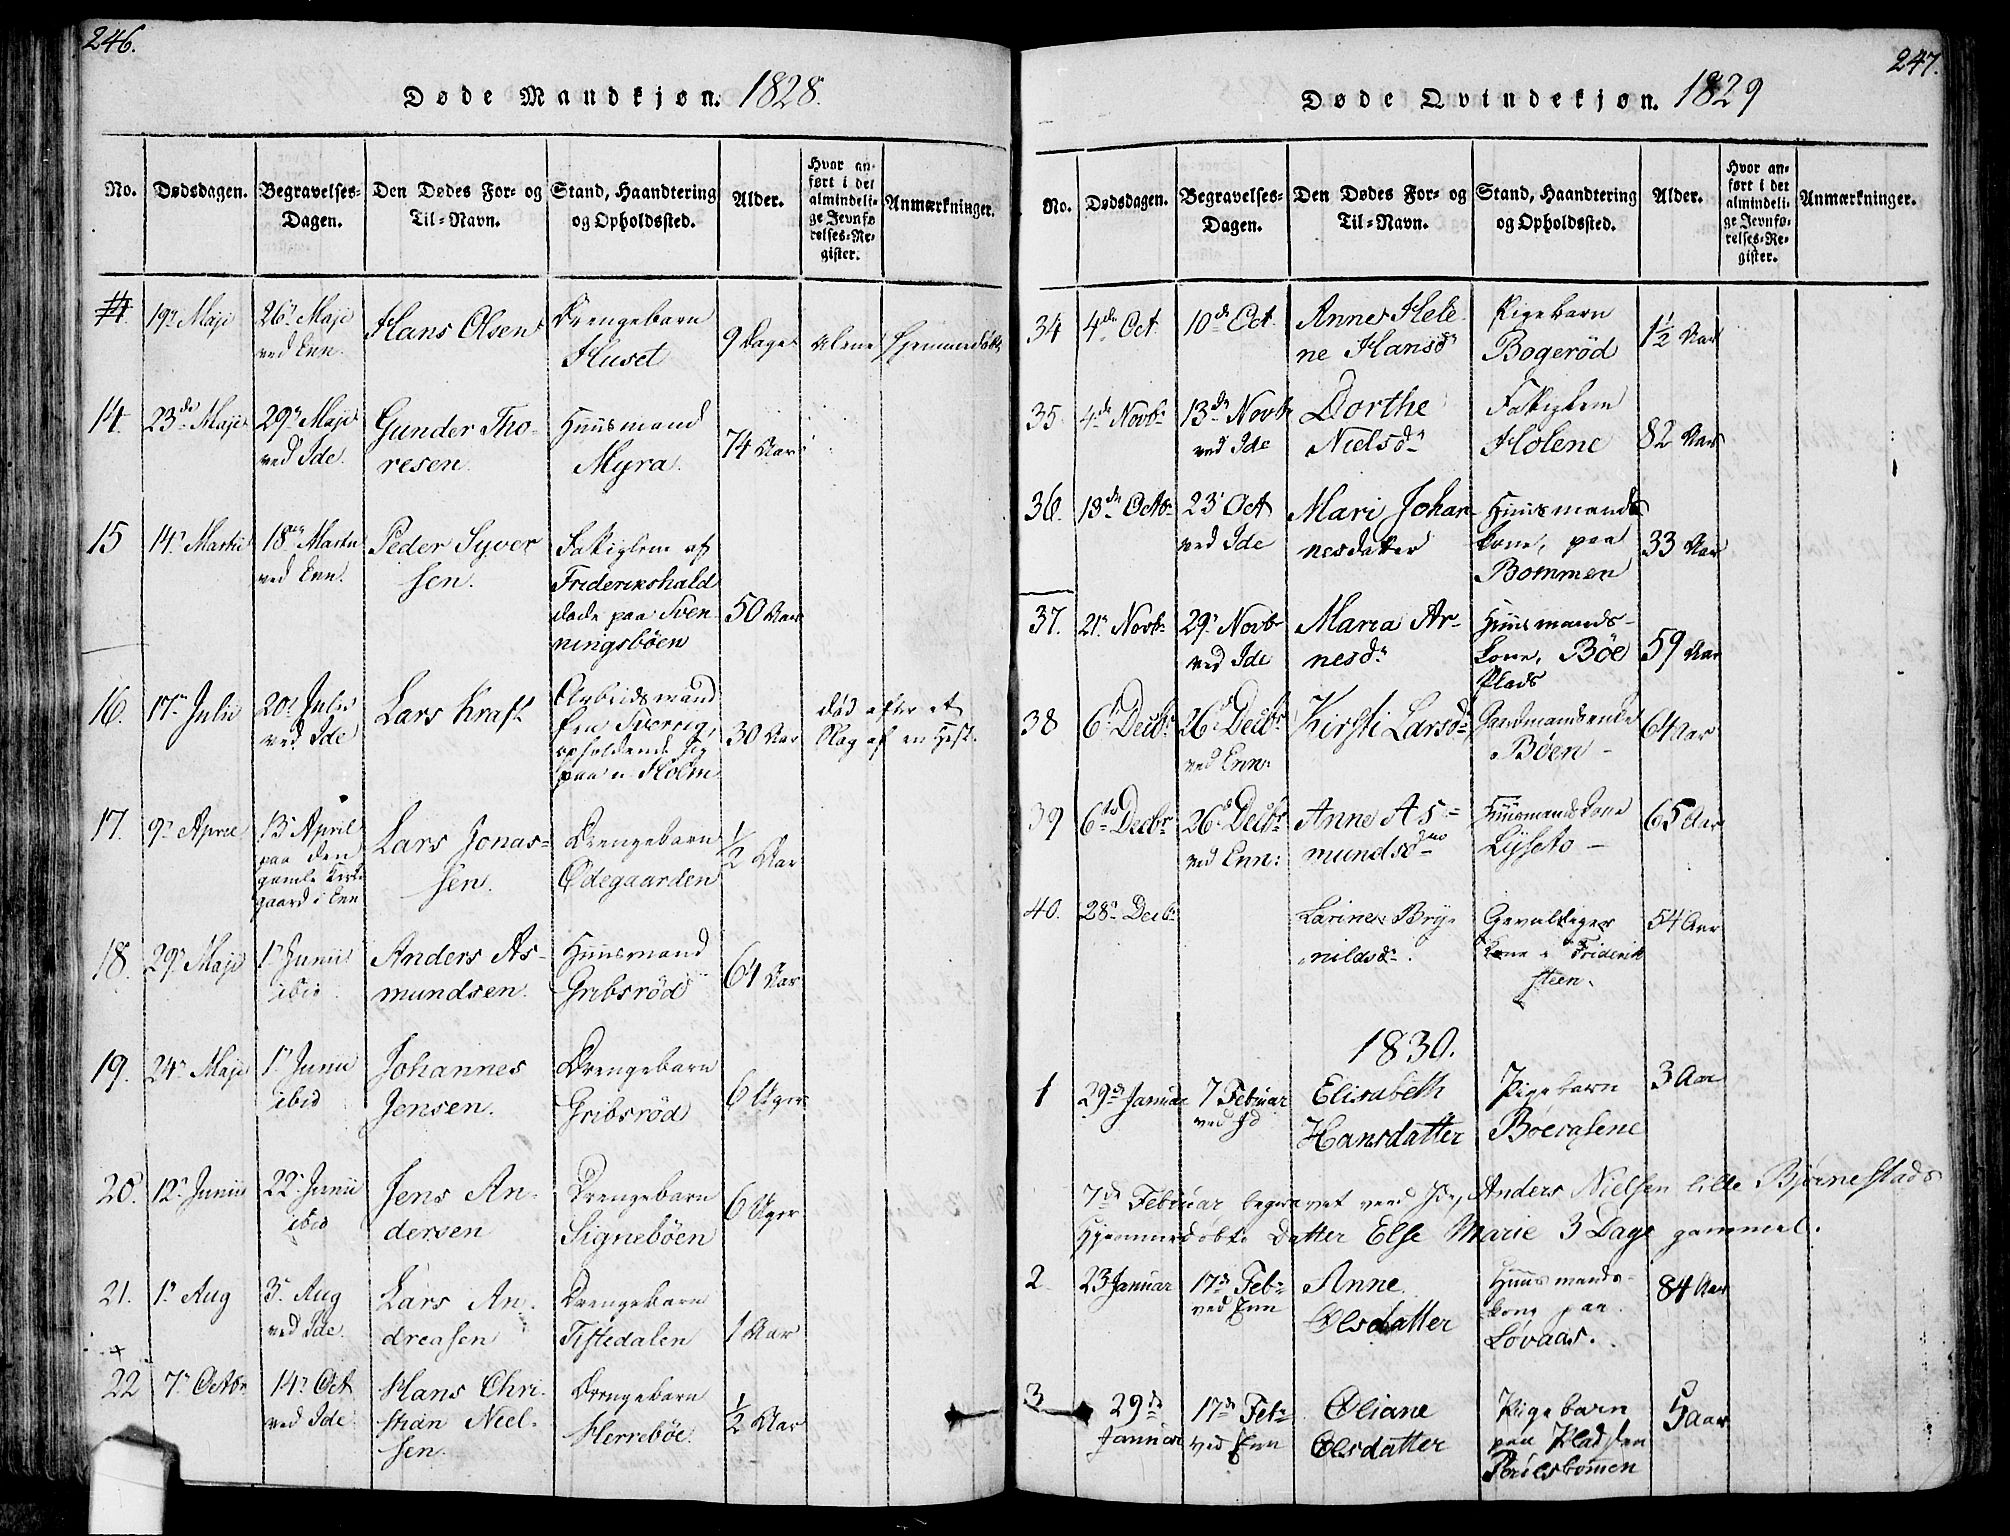 246.
Døde Mandkjøn. 1828.
No. Dødsdagen. Begravelses-Dagen. Den Dødes For- og Til-Navn. Stand, Haandtering og Opholdssted. Alder. Hvor anført i det almindelige Jevnførelses-Register. Anmærkninger.
19 Maji 26 Maji ved Enn. Hans Olsen Drengebarn Huset 9 Dage
14. 23de Maji 29 Maji ved Ide. Gunder Thoresen. Huusmand Myra. 74 Aar
15 14 Martii 18 Martii ved Enn. Peder Syversen. Fattiglem af Friderikshald døde paa Svenningsbøen 50 Aar
16. 17 Julii 20 Julii ved Ide Lars Kraft Arbeidsmand fra Sverrig, opholdende sig paa Holm 30 Aar død efter et Slag af en Hest.
17. 9 April 13 April paa den gamle Kirkegaard i Enn Lars Jonassen. Drengebarn Ødegaarden 1/2 Aar
18. 29 Maji 1 Junii ibid. Anders Asmundsen. Huusmand Gribsrød 64 Aar
19. 24 Maji 1 Junii ibid Johannes Jensen. Drengebarn Gribsrød 6 Uger
20. 12 Junii 22 Junii ibid Jens Andersen Drengebarn Signebøen 6 Uger
21. 1 Aug 3 Aug ved Ide. Lars Andreasen Drengebarn Tistedalen 1 Aar
22 7 Octbr 14 Oct ved Ide Hans Christian Nielsen. Drengebarn Herrebøe. 1/2 Aar
247.
Døde Qvindekjøn. 1829
No. Dødsdagen. Begravelses-Dagen. Den Dødes For- og Til-Navn. Stand, Haandtering og Opholdssted. Alder. Hvor anført i det almindelige Jevnførelses-Register. Anmærkninger.
34 4de Oct. 10de Oct. Anne Helene Hansdr Pigebarn Bogerød 1 1/2 Aar
35. 4de Novbr 13de Novbr ved Ide Dorthe Nielsdr Fattiglem Holene 82 Aar
36. 13de Octbr 23 Oct ved Ide Mari Johannesdatter Huusmands kone, paa Bommen 33 Aar
37. 21 Novbr 29 Novbr ved Ide Maria Arnesdr Huusmands-kone, Bøe Plads 59 Aar
38 6 Decbr 26 Decbr ved Enn: Kirsti Larsdr Gaardmandsenke Bøen - 64 Aar
39 6te Decbr 26 Decbr ved Enn: Anne Asmundsd Huusmandskone Lyseto - 65 Aar
40. 28 Decbr Larine Brynildsdr. Gevaldiger kone Frideriksteen. 54 Aar
1830.
1 29de Januar 7 Febuar ved Id Elisabeth Hansdatter Pigebarn Bøeraslene 3 Aar
7de Februar begravet ved Ide, Anders Nielsen lille Bjørnestads
Hjemmedøbte Datter Else Marie 3 Dage gammel.
2 23 Januar 17de Febr ved Enn Anne Olsdatter Huusmands-kone paa Løvaas. 84 Aar
3 29de Januar 17de Febr ved Enn Oliane Olsdatter Pigebarn paa Pladsen 5 Aar